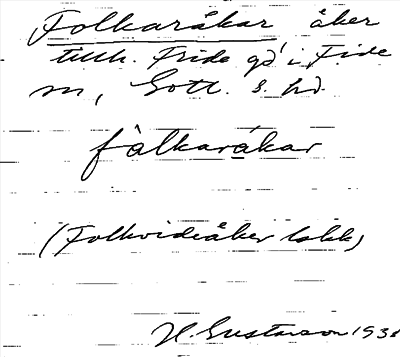 Folkaråkar åker
tillh. Fride gd i Fide
sn, Gotl. s. hd.
fàlkaråkar
(Folkvideåker lokk)
H. Gustavson 193